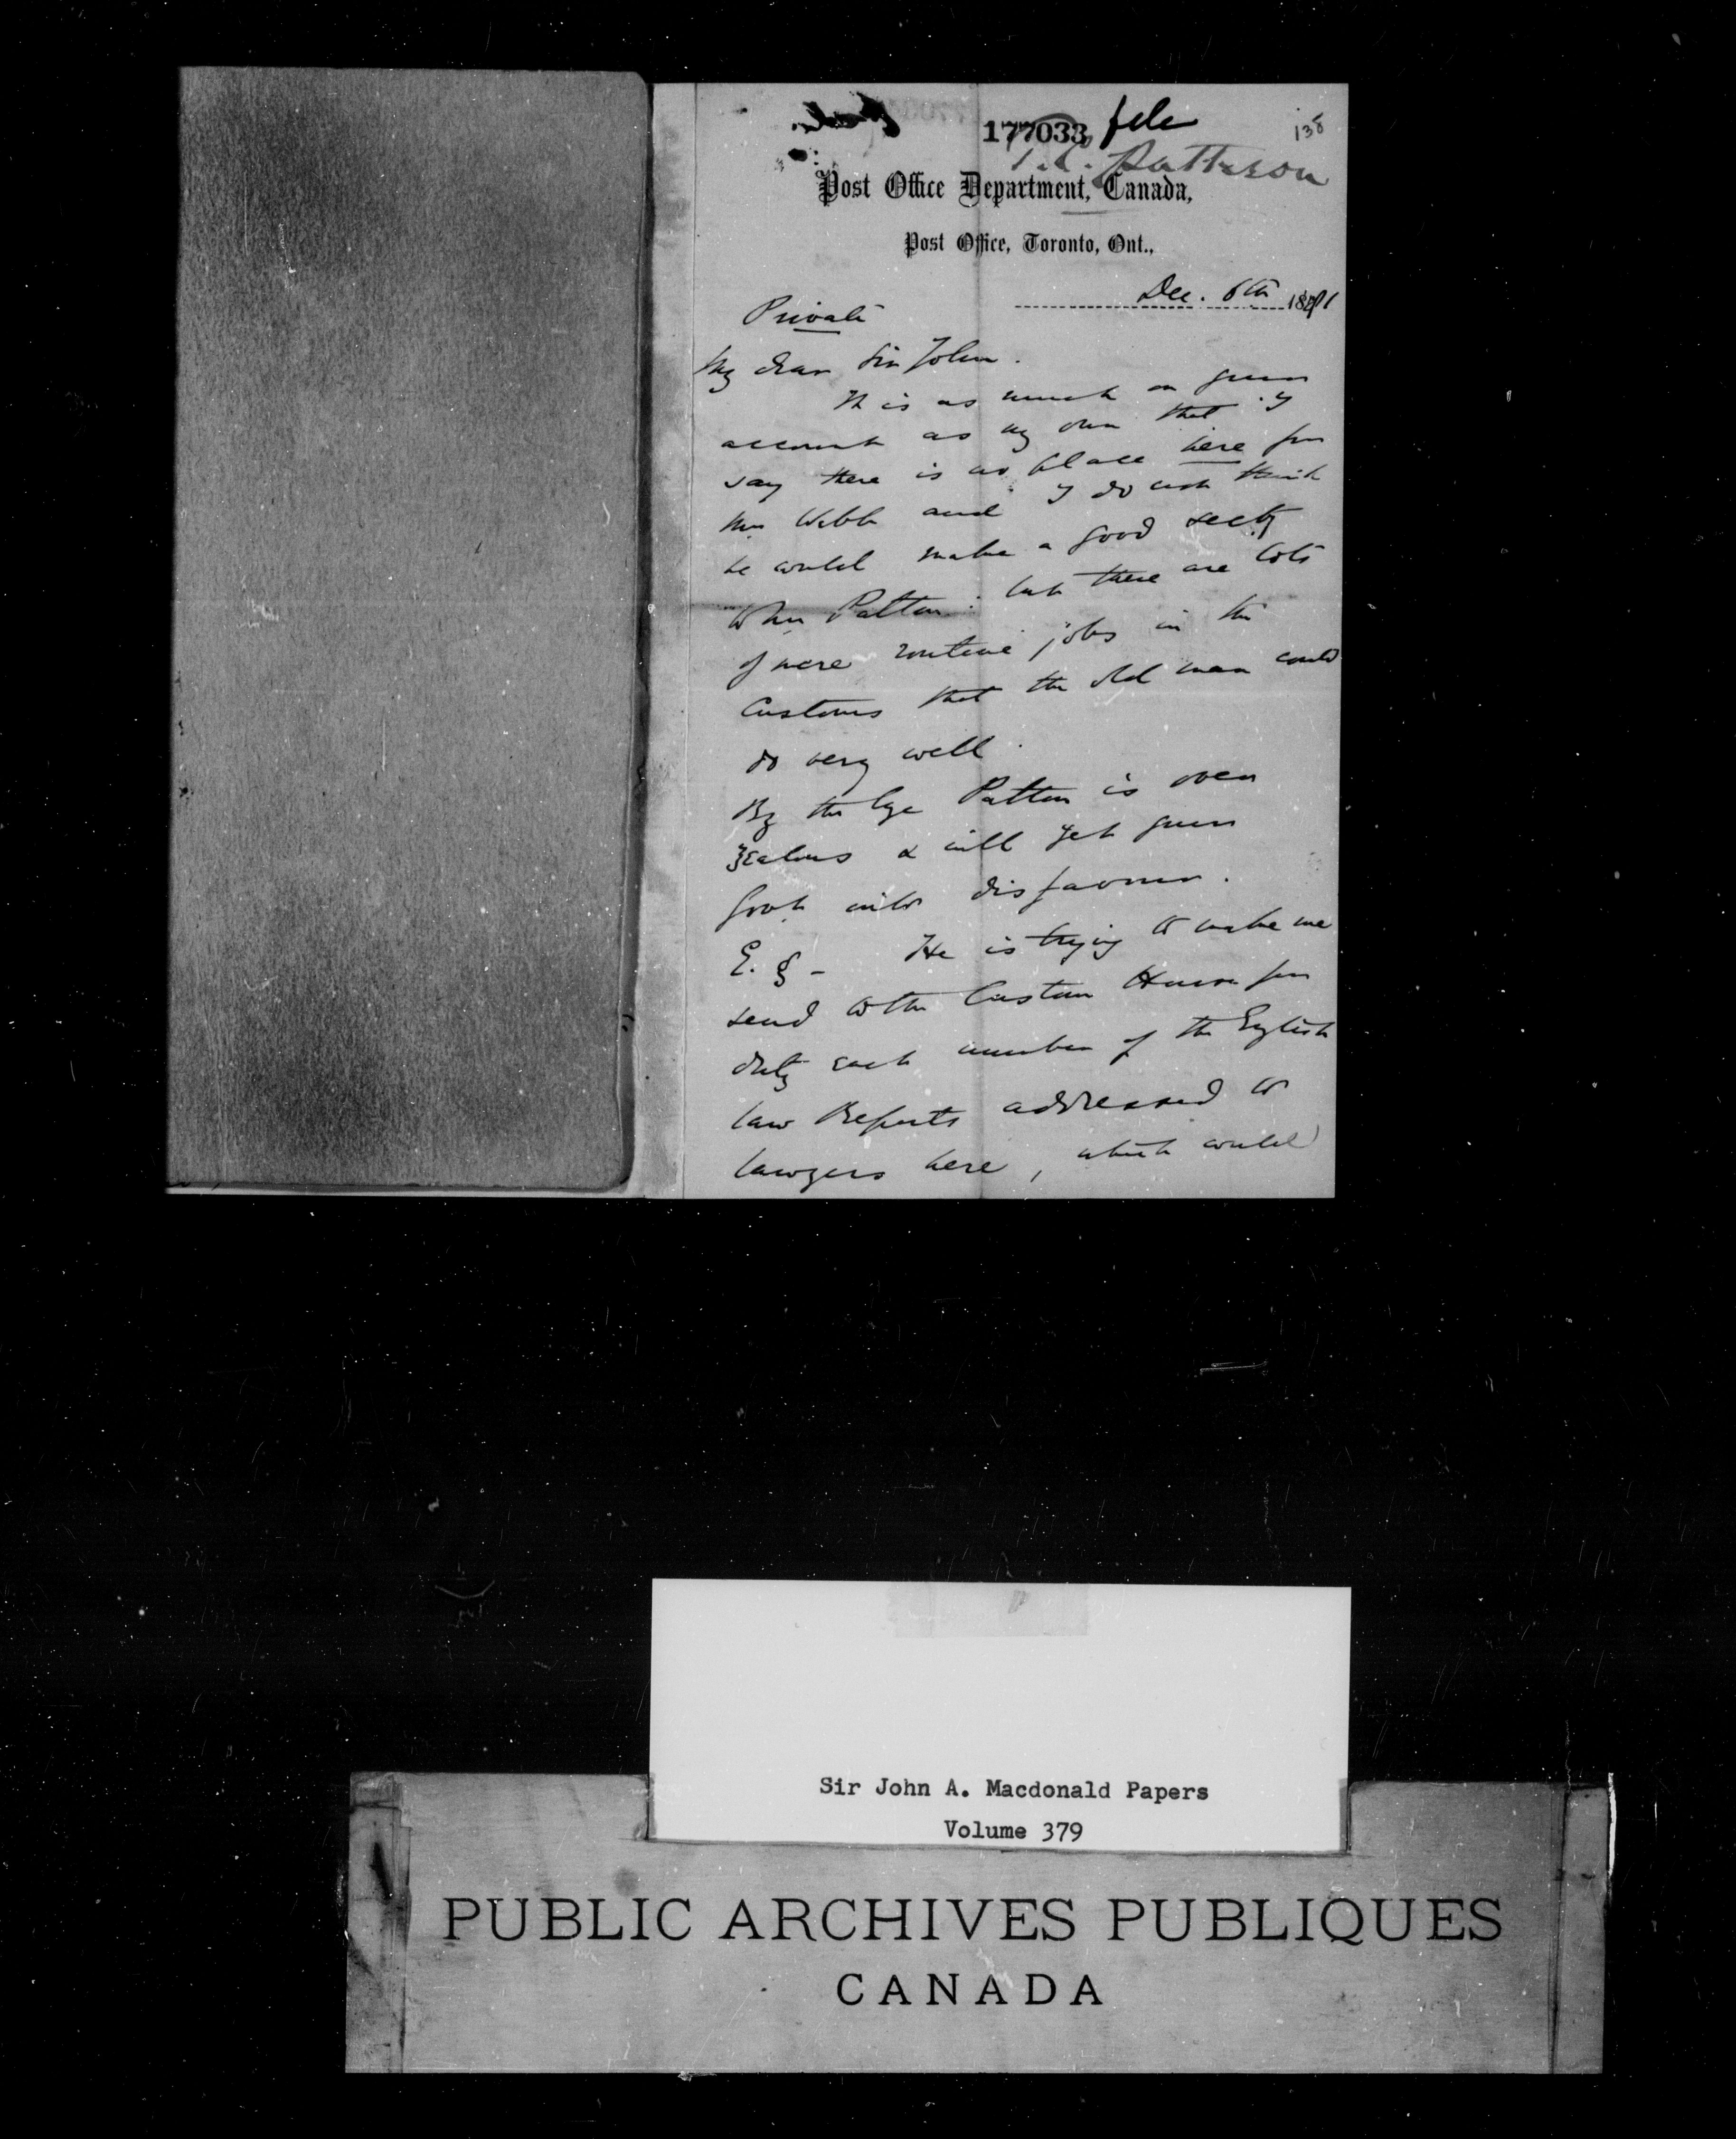 177033 file
138
T.C. Patteson
Post Office Department, Canada,
Post Office, Toronto, Ont.,
Dec. 6th 1881
Private
My dear Sir John.
It is as much on your
account as my own that I
say there is no place here for
Mr Webb and I do not think
he could make a good secty
to Mr Patton: but there are lots
of mere routine jobs in the
Customs that the old man could
do very well.
By the bye Patton is over
zealous & will get your
Govt into disfavour.
E.g - He is trying to make me
send to the Custom House for
duty each number of the English
law Reports addressed to
lawyers here, which would
Sir John A. Macdonald Papers
Volume 379
PUBLIC ARCHIVES PUBLIQUES
CANADA